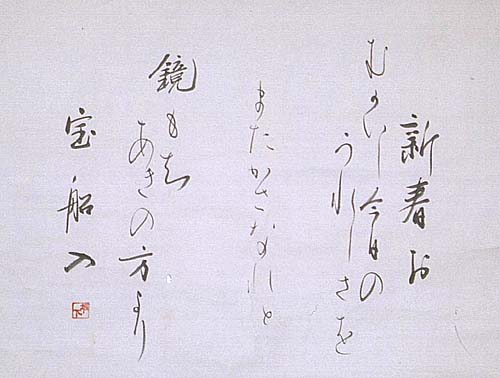 新春お
むかいし今日の
うれしさを
またかさなれと
鏡もち
あきの方より
宝船入